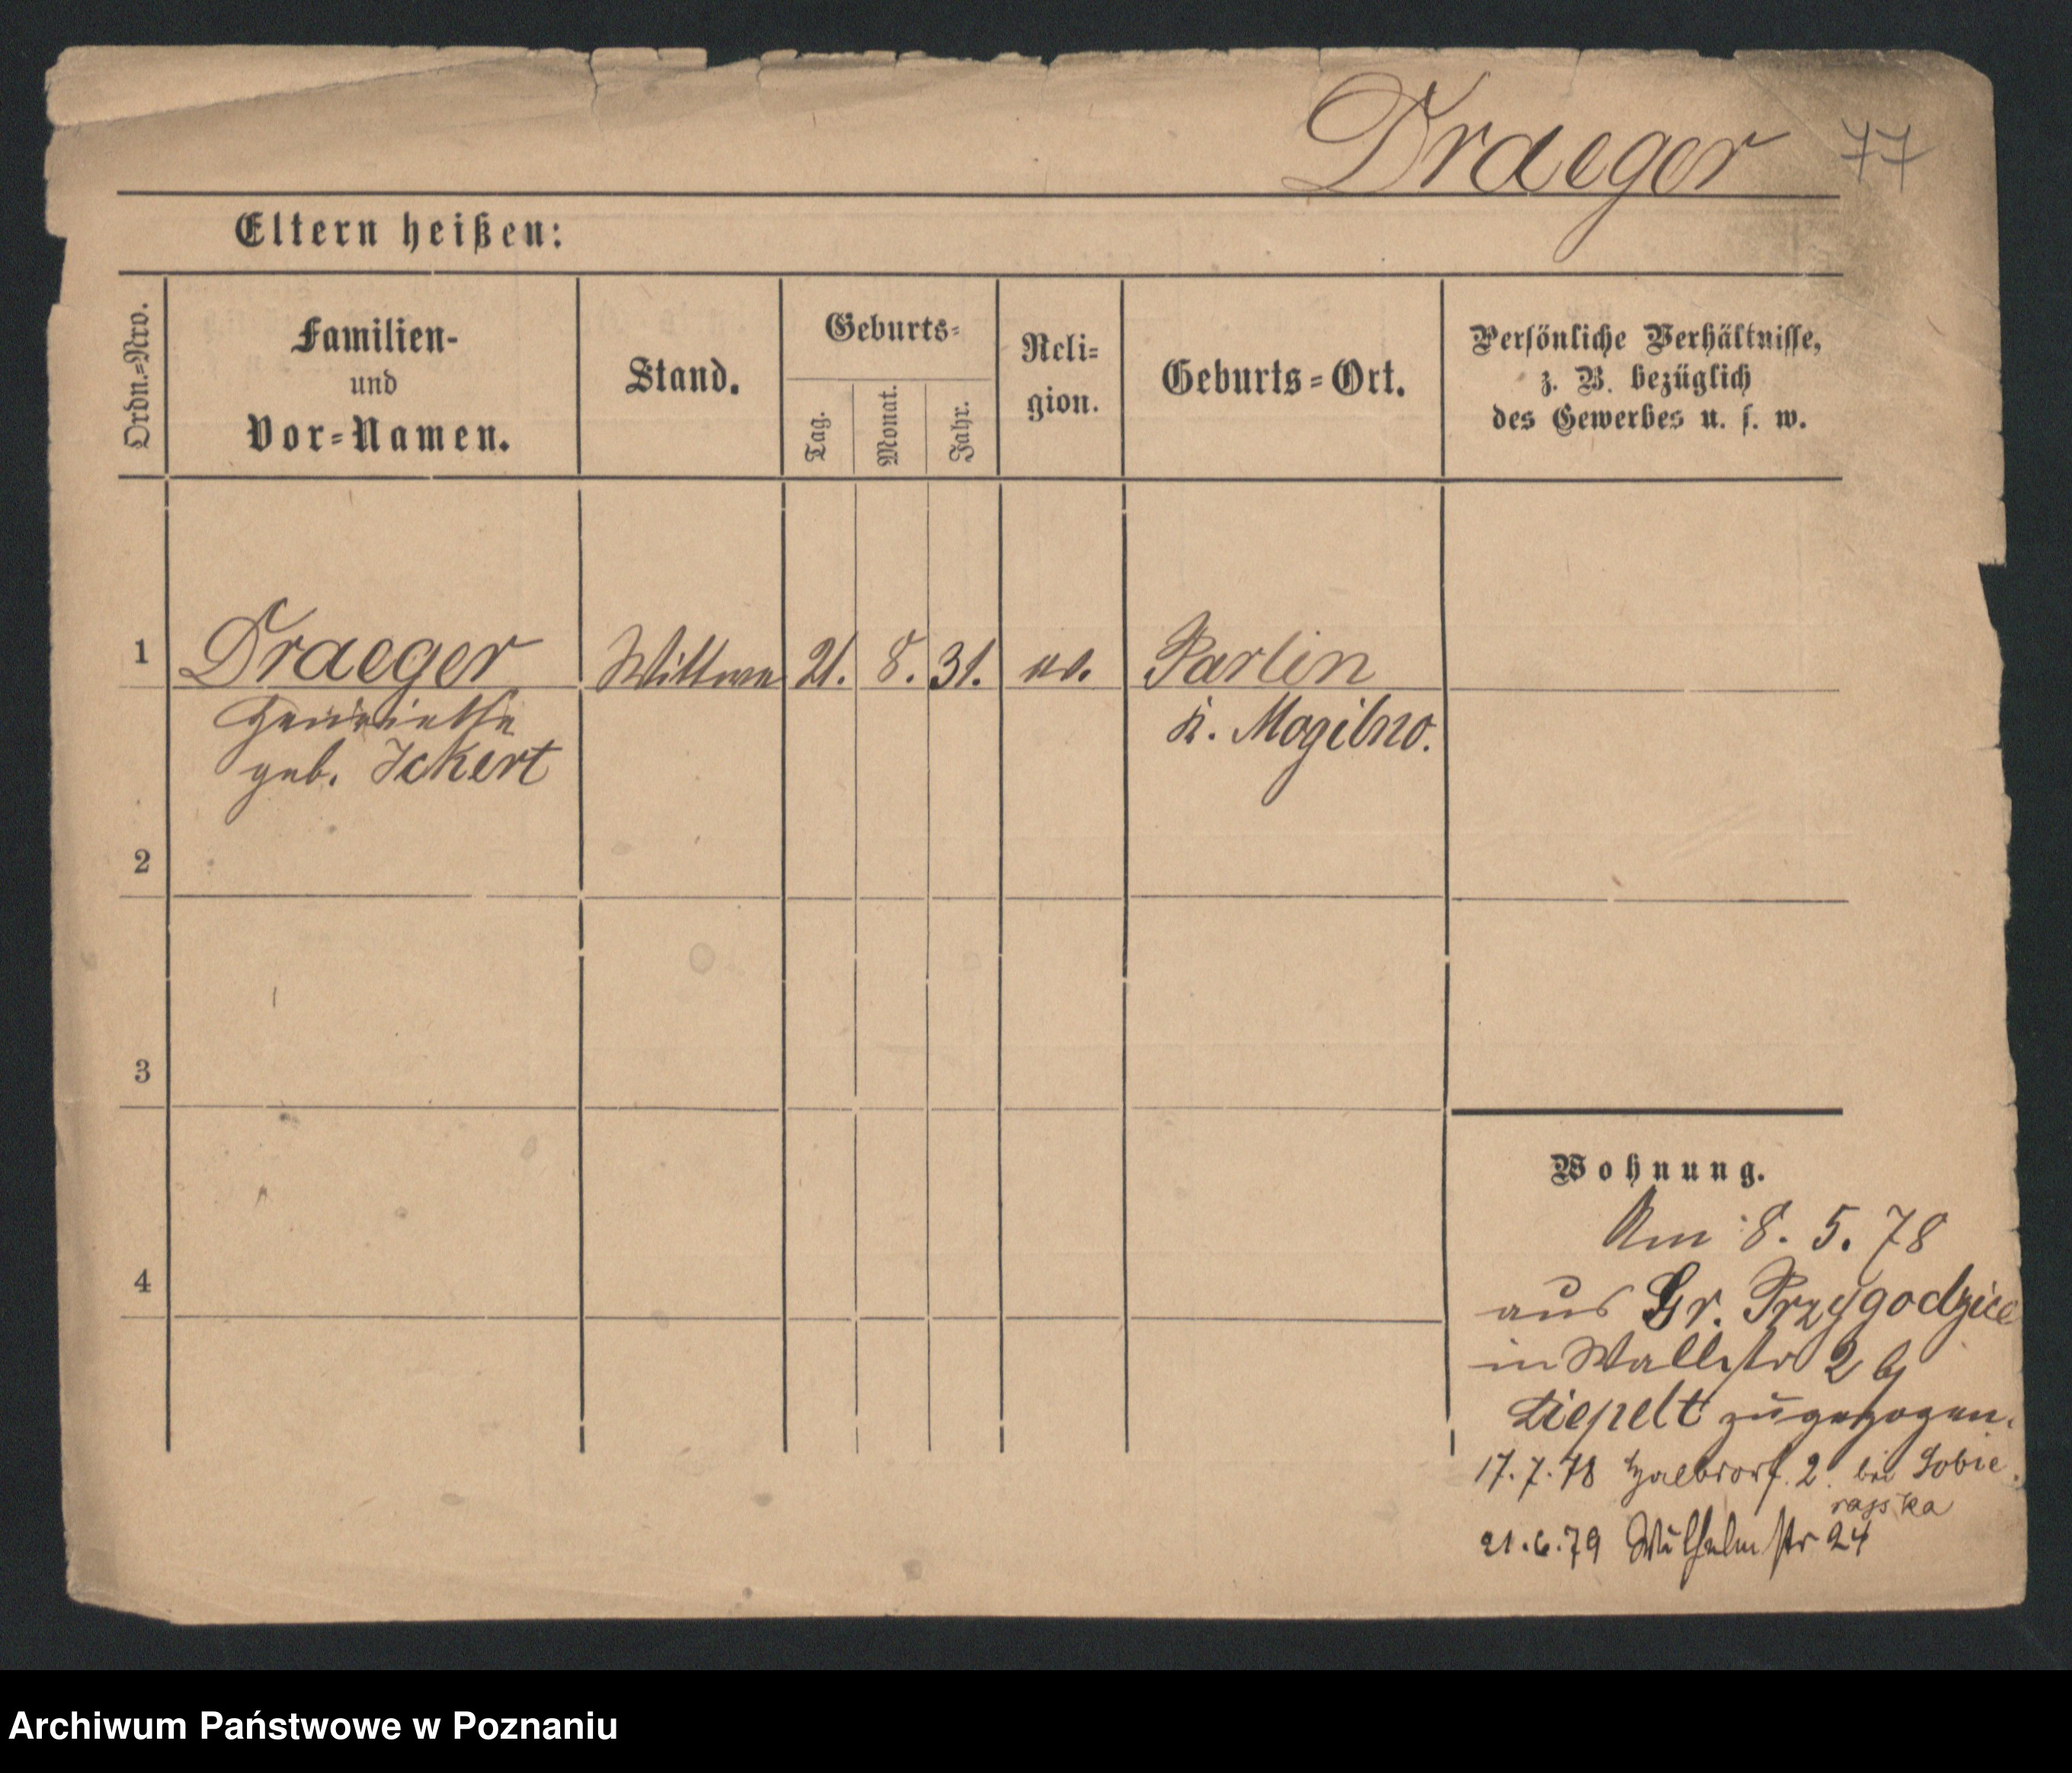 Draeger 77
Eltern heißen:
Ordn.=Nro.
Familien-
und
Vor=Namen.
Stand.
Geburts=
Tag.
Monat.
Jahr.
Reli=
gion.
Geburts=Ort.
Persönliche Verhältnisse,
z. B. bezüglich
des Gewerbes u. s. w.
1 Draeger Wittwe 21. 8. 31. ev. Parlin
Henriette K. Mogilno.
geb. Ickert
2
3
4
Wohnung.
Am 8. 5. 78
aus Gr. Przygodzice
in Wallstr 2 b
Liepelt zugezogen.
17.7.78 Halbdorf. 2. bei Sobie
rajska
21.6.79 Wilhelmstr 24
Archiwum Państwowe w Poznaniu